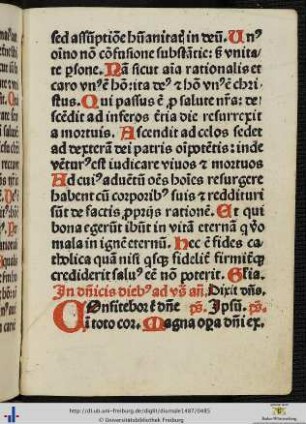 sed assūptiōe hūanitat; in deū. Unꝰ
oīno nō cōfusione substātie: ß vnita-
te ꝑsone. Nā sicut aīa rationalis et
caro vnꝰ ē hō: ita deꝰ ⁊ hō vnꝰ ē chri-
stus. Qui passus ē ꝓ salute nr̄a: de-
scēdit ad inferos t̄tia die resurrexit
a mortuis. Ascendit ad celos sedet
ad dexterā dei patris oīpotētis: inde
vēturꝰ est iudicare viuos ⁊ mortuos
Ad cuiꝰ aduētū oēs hoīes resurgere
habent cū corporibꝰ suis ⁊ reddituri
sūt de factis ꝓprijs rationē. Et qui
bona egerūt ibūt in vitā eternā qͦ vo
mala in ignē eternū. Hec ē fides ca-
tholica quā nisi qsqꝫ fideliē firmitēqꝫ
crediderit saluꝰ eē nō poterit. Glīa.
In dn̄icis diebꝰ ad vs̄ an̄. Dixit dn̄s.
COnfitebor ē dn̄e ps̄. Ipsū. ps̄.
Ci toto cor. Magna oꝑa dn̄i ex.
http://dl.ub.uni-freiburg.de/diglit/diurnale1487/0485
© Universitätsbibliothek Freiburg
Baden-Württemberg